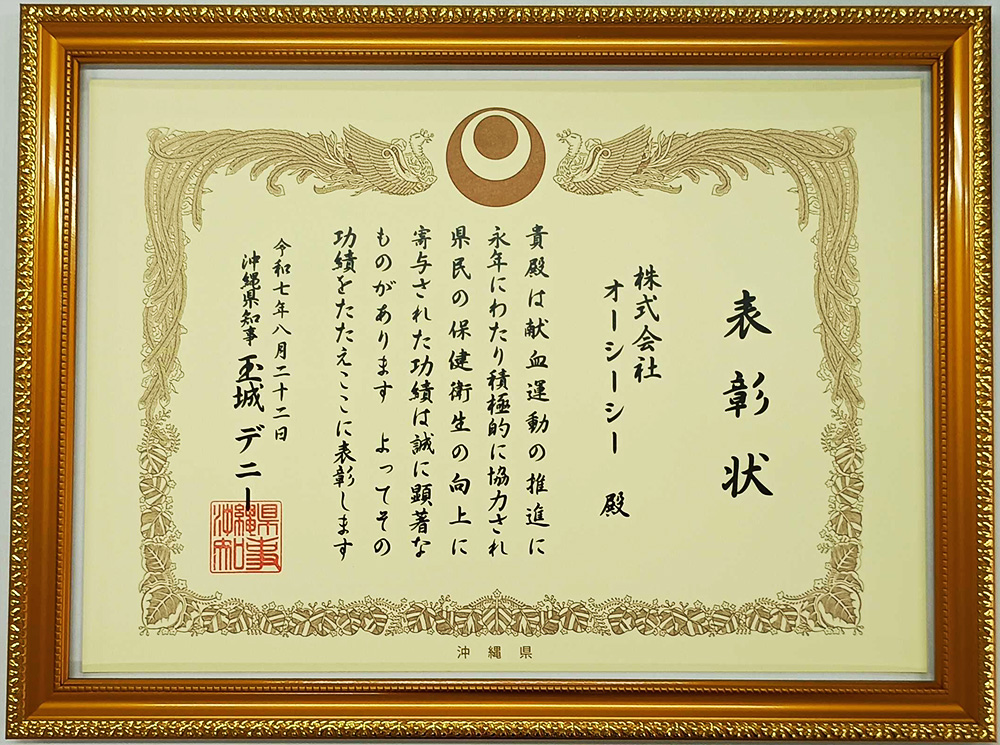 表彰状
株式会社
オーシーシー 殿
貴殿は献血運動の推進に
永年にわたり積極的に協力され
県民の保健衛生の向上に
寄与された功績は誠に顕著な
ものがあります よってその
功績をたたえここに表彰します
令和七年八月二十二日
沖縄県知事 玉城 デニー
沖縄県知事
沖縄県